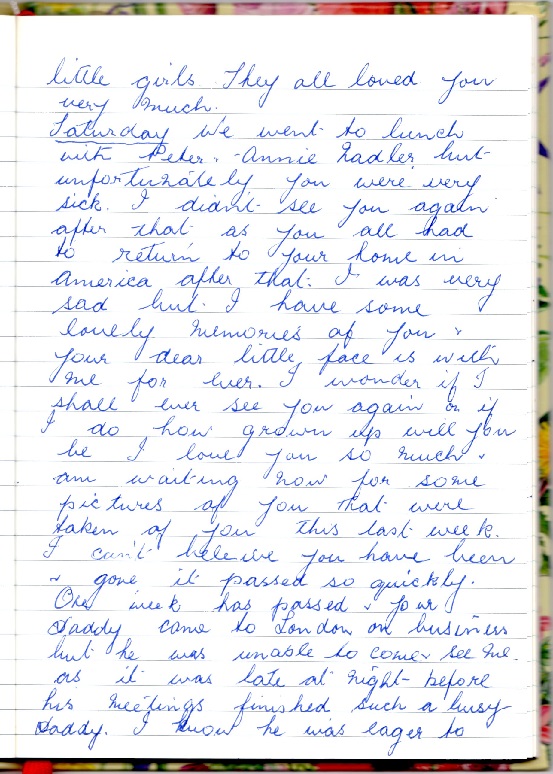 little girls. They all loved you
very much.
Saturday We went to lunch
with Peter & Annie Nadler but
unfortunately you were very
sick. I didn't see you again
after that as you all had
to return to your home in
America after that. I was very
sad but I have some
lovely memories of you &
your dear little face is with
me for ever. I wonder if I
shall ever see you again or if
I do how grown up will you
be I love you so much &
am waiting now for some
pictures of you that were
taken of you this last week.
I can't beleive you have been
& gone it passed so quickly.
One week has passed & your
Daddy came to London on business
but he was unable to come & see me.
as it was late at night before
his meetings finished such a busy
Daddy. I know he was eager to